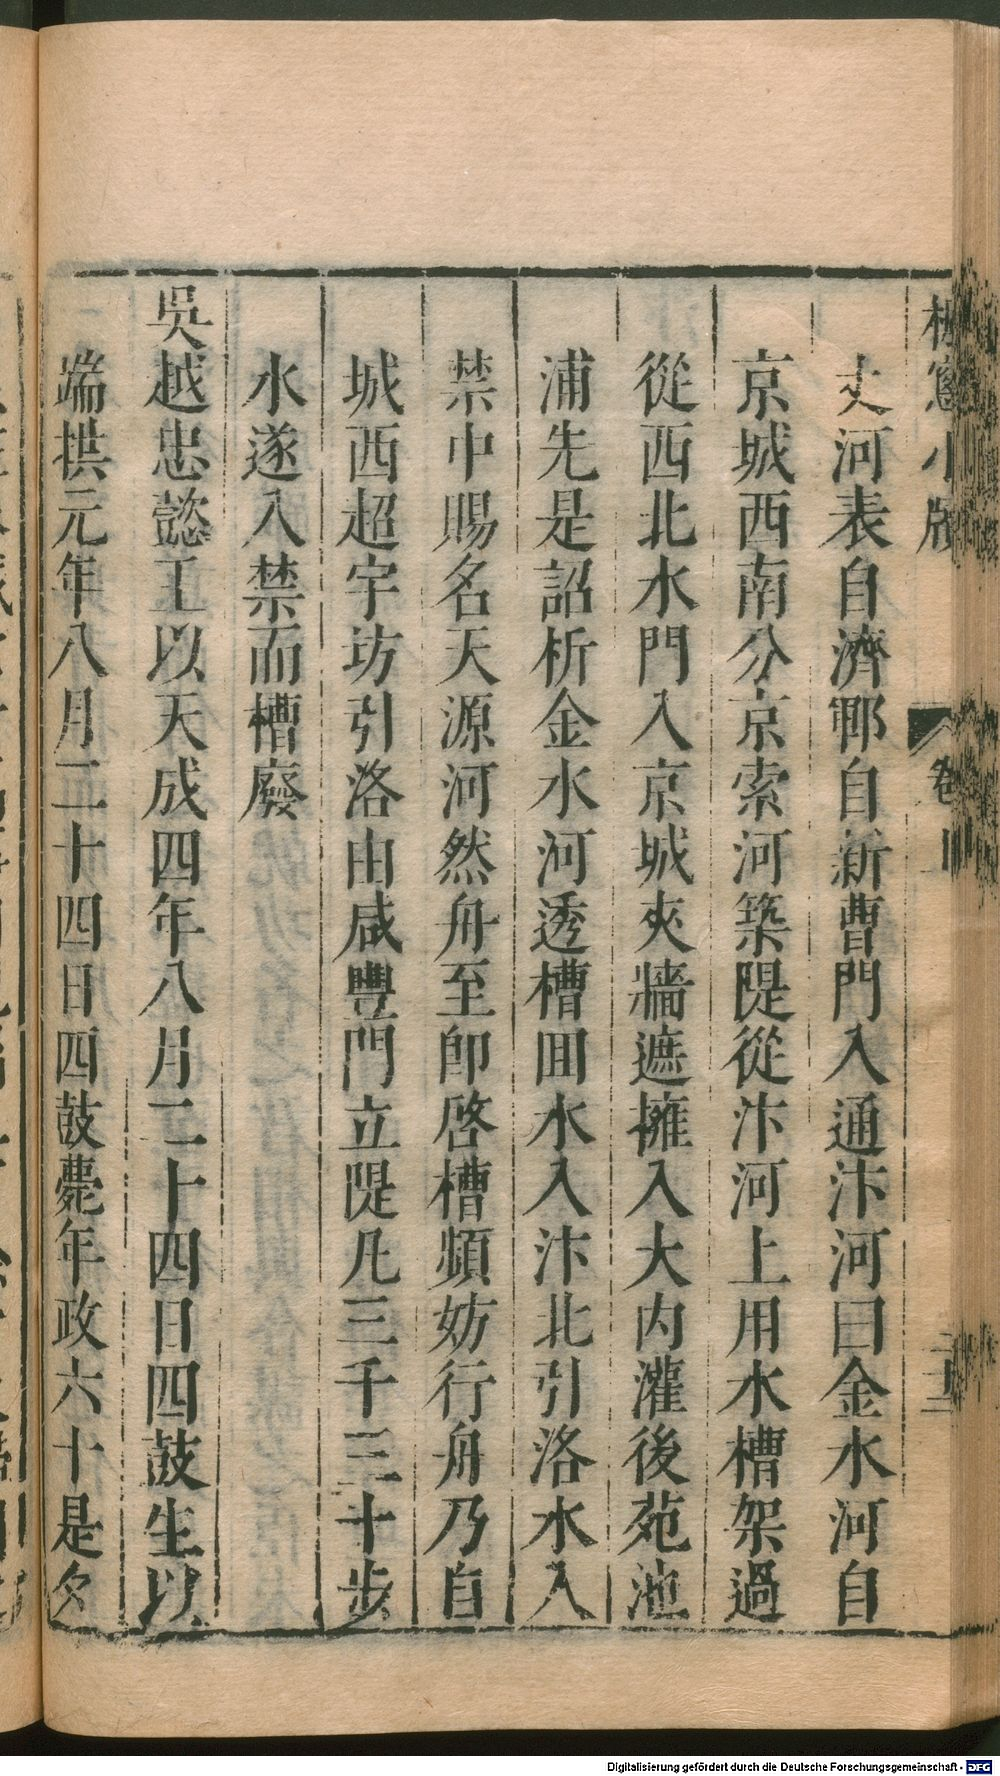 丈河表自濟鄆自新曹門入通汴河曰金水河自
京城西南分京索河築隄從汴河上用水槽架過
從西北水門入京城夾牆遮擁入大内灌後苑池
浦先是詔析金水河透槽囬水入汴北引洛水入
禁中賜名天源河然舟至卽啓槽頻妨行舟乃自
城西超宇坊引洛由咸豐門立隄凡三千三十步
水遂入禁而槽廢
吳越忠懿王以天成四年八月二十四日四鼓生以
端拱元年八月二十四日四鼓薨年政六十是夕
Digitalisierung gefördert durch die Deutsche Forschungsgemeinschaft - DFG